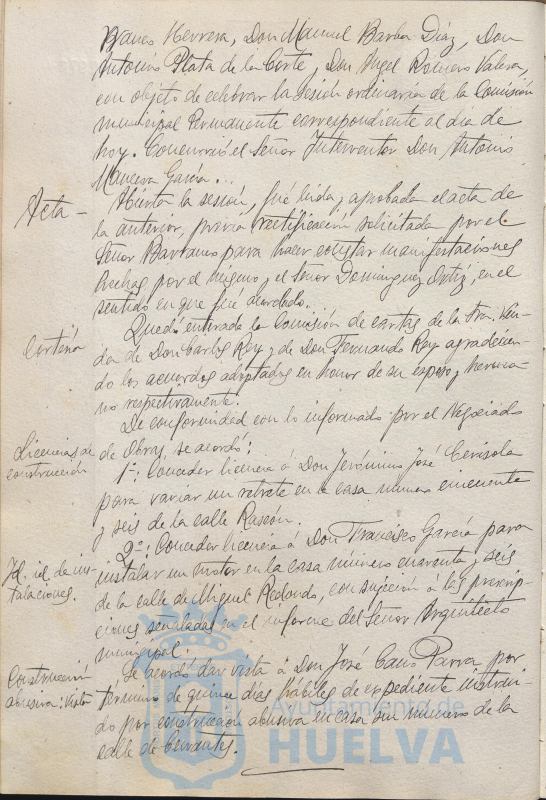 Blanco Herrera, Don Manuel Barba Díaz, Don
Antonio Plata de la Corte, Don Angel Romero Valera,
con objeto de celebrar la sesión ordinaria de la Comisión
municipal Permanente correspondiente al día de
hoy. Concurrió el Señor Interventor Don Antonio
García...
Acta -
Abierta la sesión, fué leída y aprobada el acta de
la anterior, previa rectificación solicitada por el
Señor Barranco para hacer constar manifestaciones
hechas por el mismo y el Señor Dominguez Ortiz, en el
sentido en que fue acordado.
Cortina
Quedó entrada la Comisión de cartas de la Sra. Viu-
da de Don Carlos Rey y de Don Fernando Rey agradecien-
do los acuerdos adoptados en honor de su esposo y herma-
no respectivamente.
Licencias de
construcción
De conformidad con lo informado por el Negociado
de Obras, se acordó:
1º: Conceder licencia á Don Jerónimo José Cerisola
para variar un retrete en la casa número cincuenta
y seis de la calle Rascón.
Id. id. de ins-
talaciones.
2º: Conceder licencia á Don Francisco García para
instalar un motor en la casa número cuarenta y seis
de la calle de Miguel Redondo, con sujeción á las prescrip-
ciones señaladas en el informe del Señor Arquitecto
municipal.
Construcción
abusiva: Vista
Se acordó dar vista á Don José Cano Parra por
término de quince días hábiles de expediente instrui-
do por construcción abusiva en casa sin número de la
calle de Cervantes.
Ayuntamiento de
HUELVA